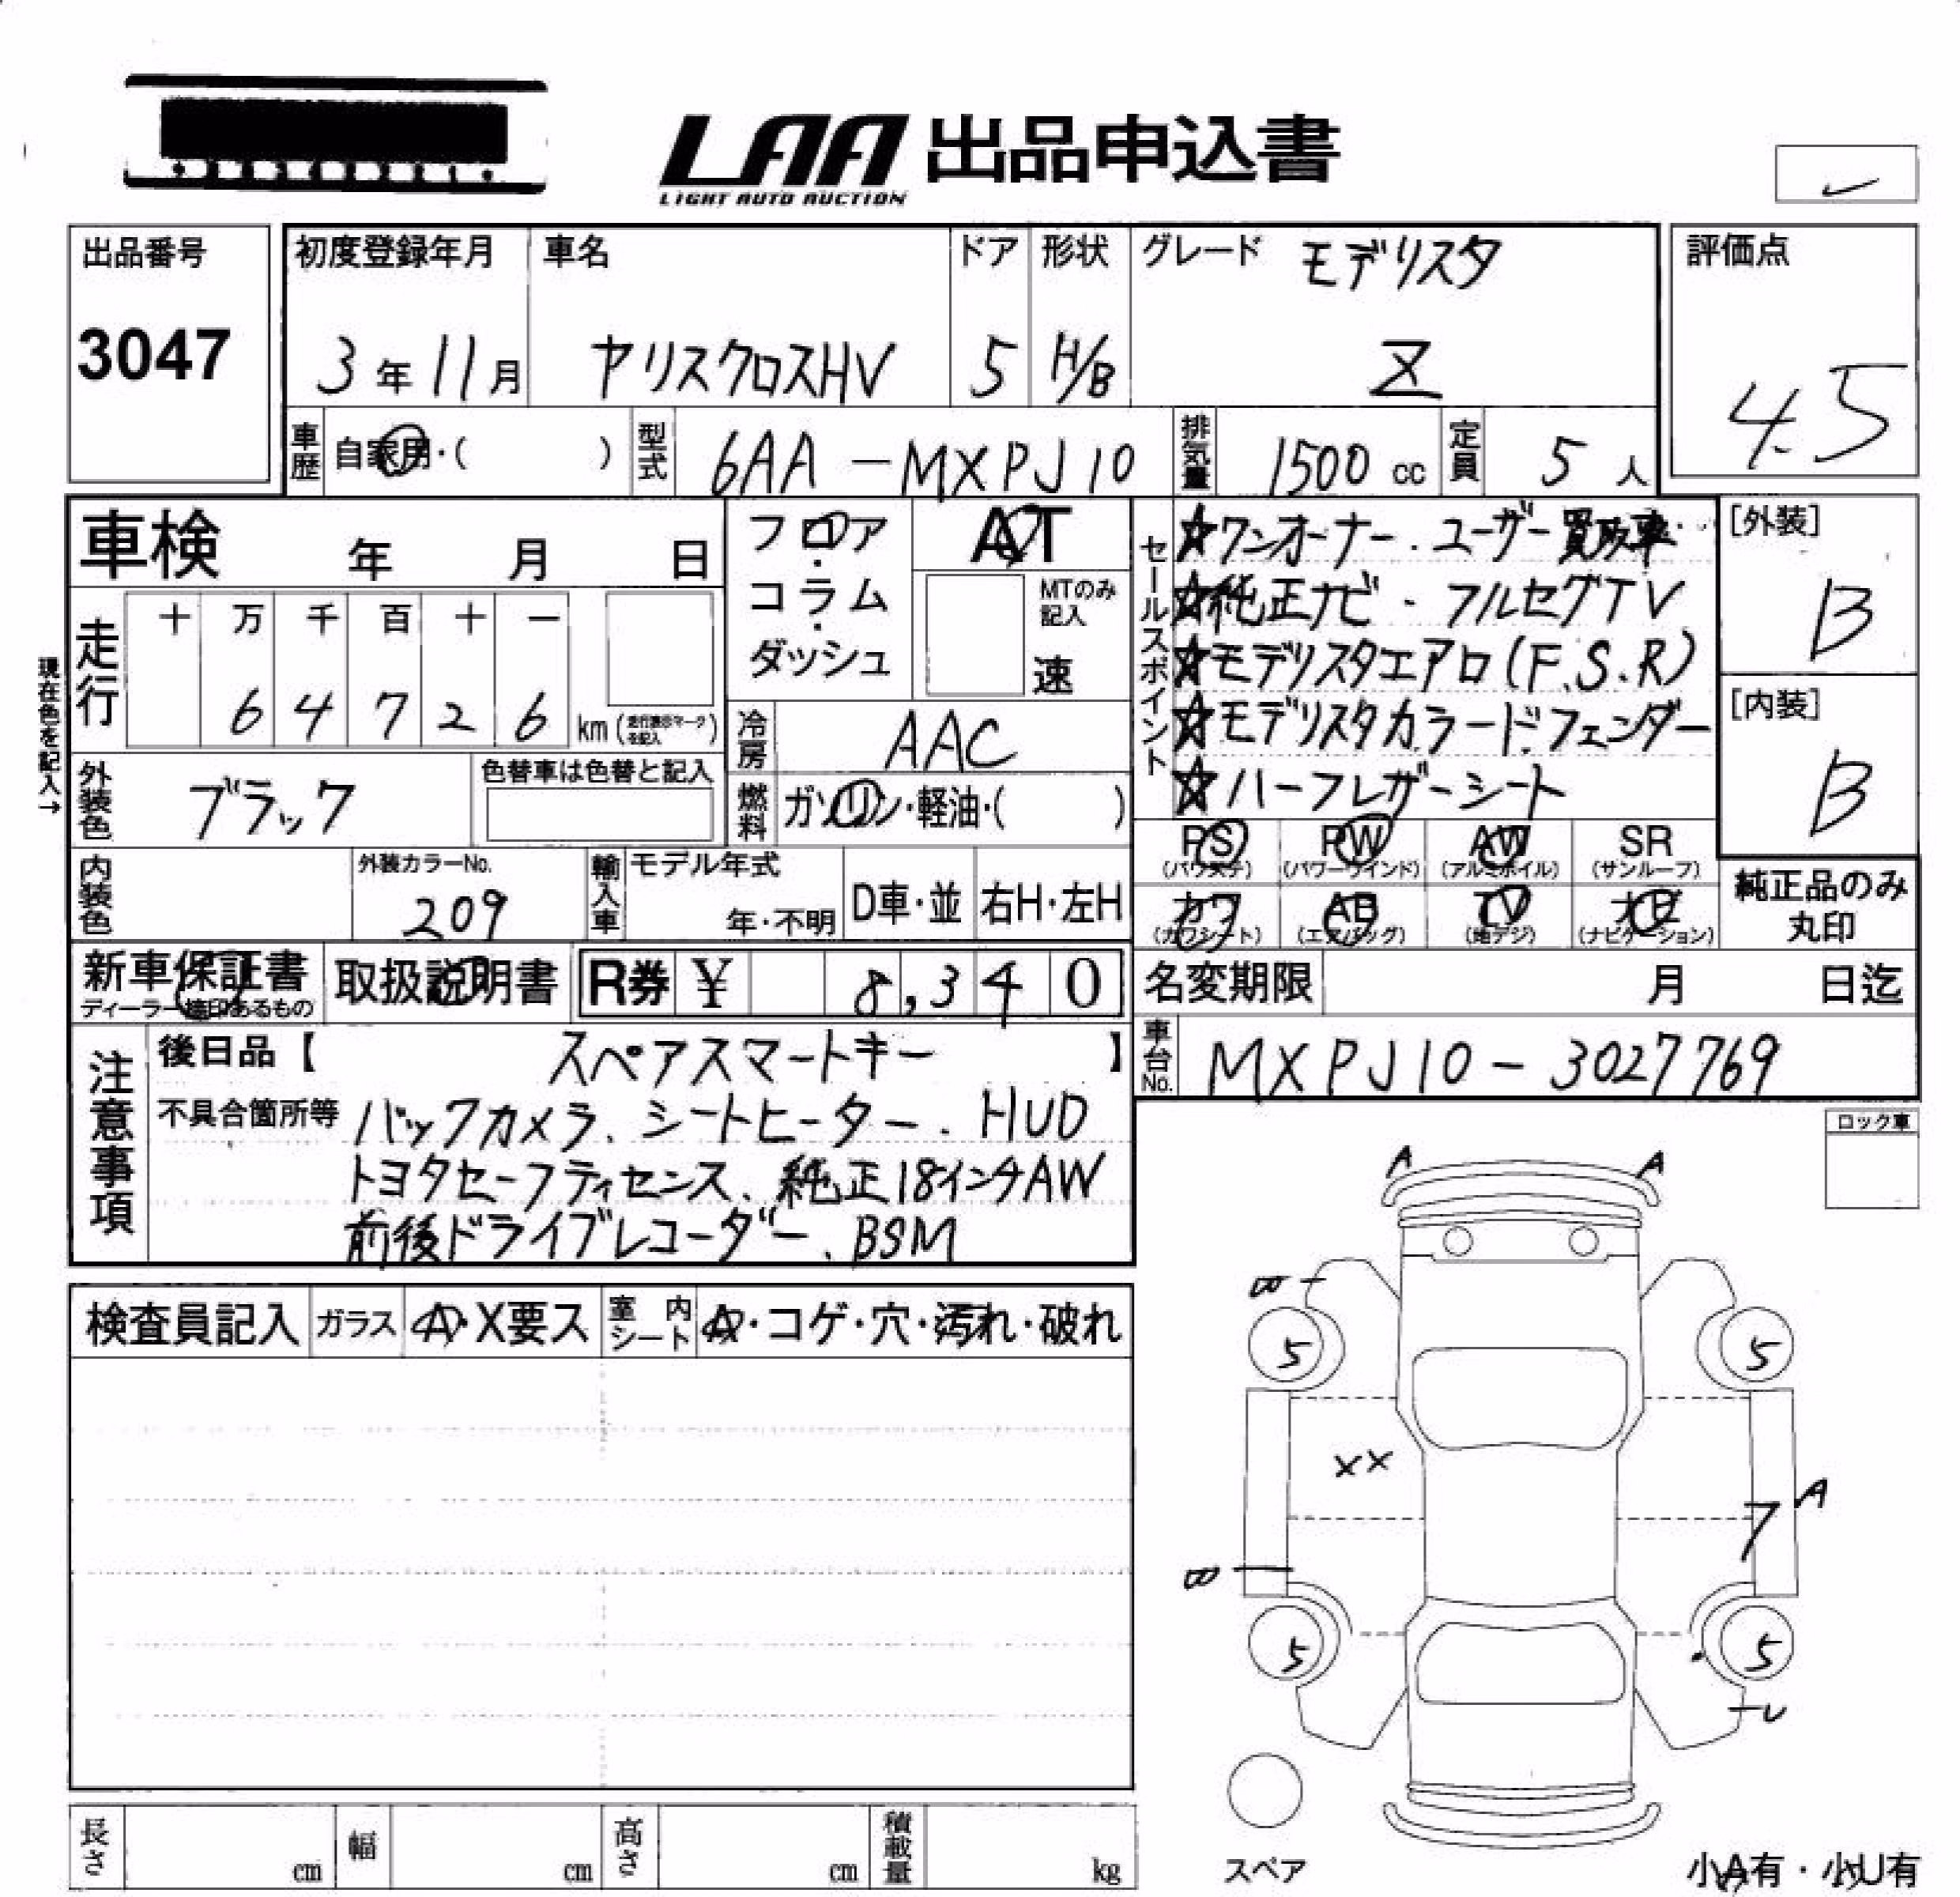 LAA 出品申込書
LIGHT AUTO AUCTION
出品番号
3047
初度登録年月
3年11月
車名
ヤリスクロスHV
ドア
5
形状
H/B
グレード モデリスタ
Z
評価点
4.5
車歴 自家用・( )
型式 6AA-MXPJ10
排気量 1500cc
定員 5人
車検 年 月 日
フロア・コラム・ダッシュ
AT
MTのみ記入
速
走行 十 万 千 百 十 一
64726 km(走行表示マークを記入)
現在色を記入→
冷房 AAC
外装色 ブラック
色替車は色替と記入
燃料 ガソリン・軽油・( )
内装色
外装カラーNo. 209
輸入車 モデル年式
年・不明
D車・並
右H・左H
セールスポイント
☆ワンオーナー.ユーザー買取車
☆純正ナビ・フルセグTV
☆モデリスタエアロ(F.S.R)
☆モデリスタカラードフェンダー
☆ハーフレザーシート
[外装]
B
[内装]
B
PS (パワステ)
PW (パワーウインド)
AW (アルミホイル)
SR (サンルーフ)
カワ (カワシート)
AB (エアバッグ)
TV (地デジ)
ナビ (ナビゲーション)
純正品のみ丸印
新車保証書
ディーラー捺印あるもの
取扱説明書
R券 ¥ 8,340
名変期限 月 日迄
車台No. MXPJ10-3027769
注意事項
後日品【 スペアスマートキー 】
不具合箇所等 バックカメラ、シートヒーター.HUD
トヨタセーフティセンス、純正18インチAW
前後ドライブレコーダー、BSM
ロック車
検査員記入
ガラス A・X要ス
室内シート A・コゲ・穴・汚れ・破れ
A A
B
5 5
XX
A
7
B
5 5
U
スペア
小A有・小U有
長さ cm
幅 cm
高さ cm
積載量 kg